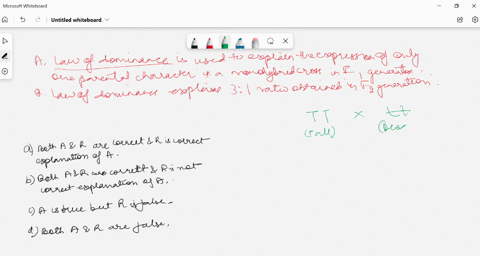 Microsoft Whiteboard
Untitled whiteboard
A. Law of dominance is used to explain the expression of only
one parental character in a monohybrid cross in F1 generation.
R. Law of dominance explains 3:1 ratio obtained in F2 generation.
TT × tt
(Tall)
a) Both A & R are correct & R is correct
explanation of A.
b) Both A & R are correct & R is not
correct explanation of A.
c) A is true but R is false.
d) Both A & R are false.